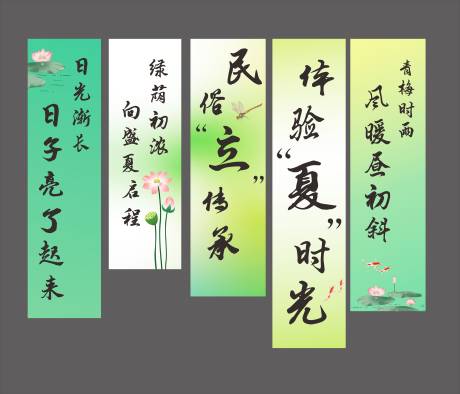 日光渐长
日子亮了起来
绿荫初浓
向盛夏启程
民俗“立”传承
体验“夏”时光
青梅时雨
风暖昼初斜